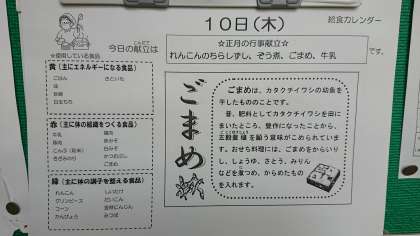 10日(木)
給食カレンダー
今日の献立は
こんだて
☆正月の行事献立☆
れんこんのちらしずし、ぞう煮、ごまめ、牛乳
です。
★使用している食品
黄(主にエネルギーになる食品)
ごはん
さといも
白玉もち
赤(主に体の組織をつくる食品)
牛乳
鶏肉
豚肉
赤みそ
こんぶ(粉末)
白みそ
きざみのり
かつおぶし
ごまめ
緑(主に体の調子を整える食品)
れんこん
しいたけ
グリンピース
だいこん
コーン
金時にんじん
かんぴょう
みつば
ごまめ
ごまめは、カタクチイワシの幼魚を
干したもののことです。
昔、肥料としてカタクチイワシを田に
まいたところ、豊作になったことから、
五穀豊穣を願う意味がこめられていま
す。おせち料理には、ごまめをからいり
し、しょうゆ、さとう、みりん
などを煮つめ、からめたもの
を入れます。